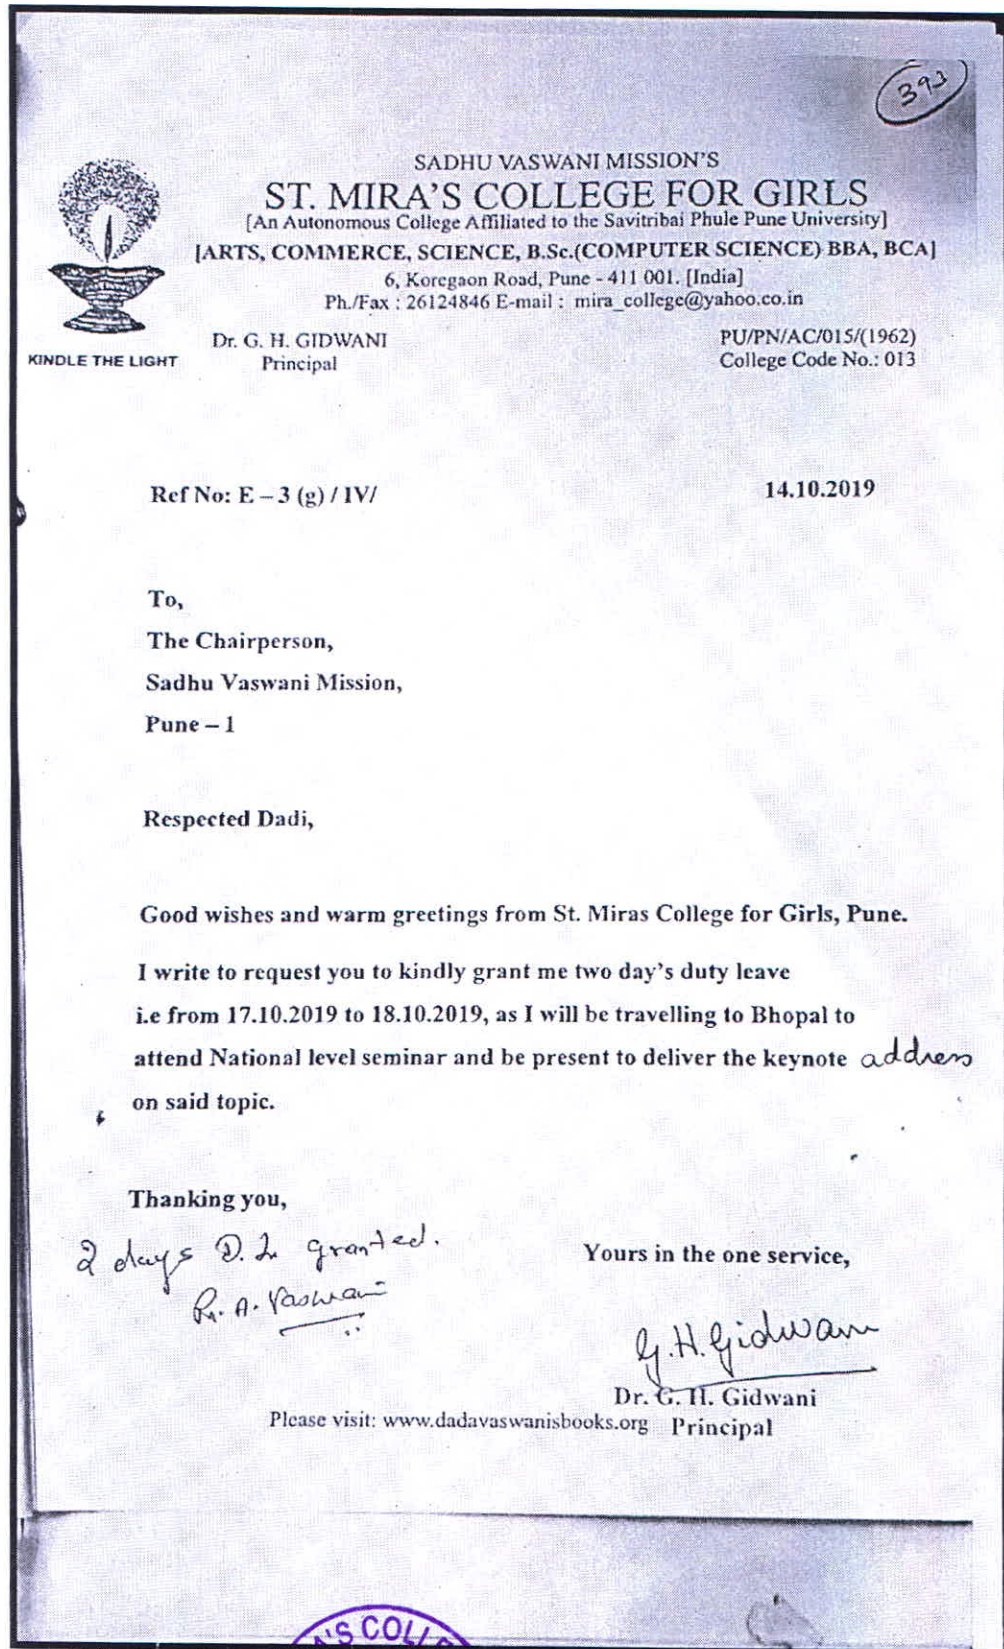 393
SADHU VASWANI MISSION'S
ST. MIRA'S COLLEGE FOR GIRLS
[An Autonomous College Affiliated to the Savitribai Phule Pune University]
[ARTS, COMMERCE, SCIENCE, B.Sc.(COMPUTER SCIENCE) BBA, BCA]
6, Koregaon Road, Pune - 411 001. [India]
Ph./Fax : 26124846 E-mail : mira_college@yahoo.co.in
KINDLE THE LIGHT
Dr. G. H. GIDWANI
Principal
PU/PN/AC/015/(1962)
College Code No.: 013
Ref No: E – 3 (g) / IV/
14.10.2019
To,
The Chairperson,
Sadhu Vaswani Mission,
Pune – 1
Respected Dadi,
Good wishes and warm greetings from St. Miras College for Girls, Pune.
I write to request you to kindly grant me two day's duty leave
i.e from 17.10.2019 to 18.10.2019, as I will be travelling to Bhopal to
attend National level seminar and be present to deliver the keynote address
on said topic.
Thanking you,
2 days D.L granted.
R. A. Vaswani
Yours in the one service,
G.H.Gidwani
Dr. G. H. Gidwani
Principal
Please visit: www.dadavaswanisbooks.org
A'S COLLE